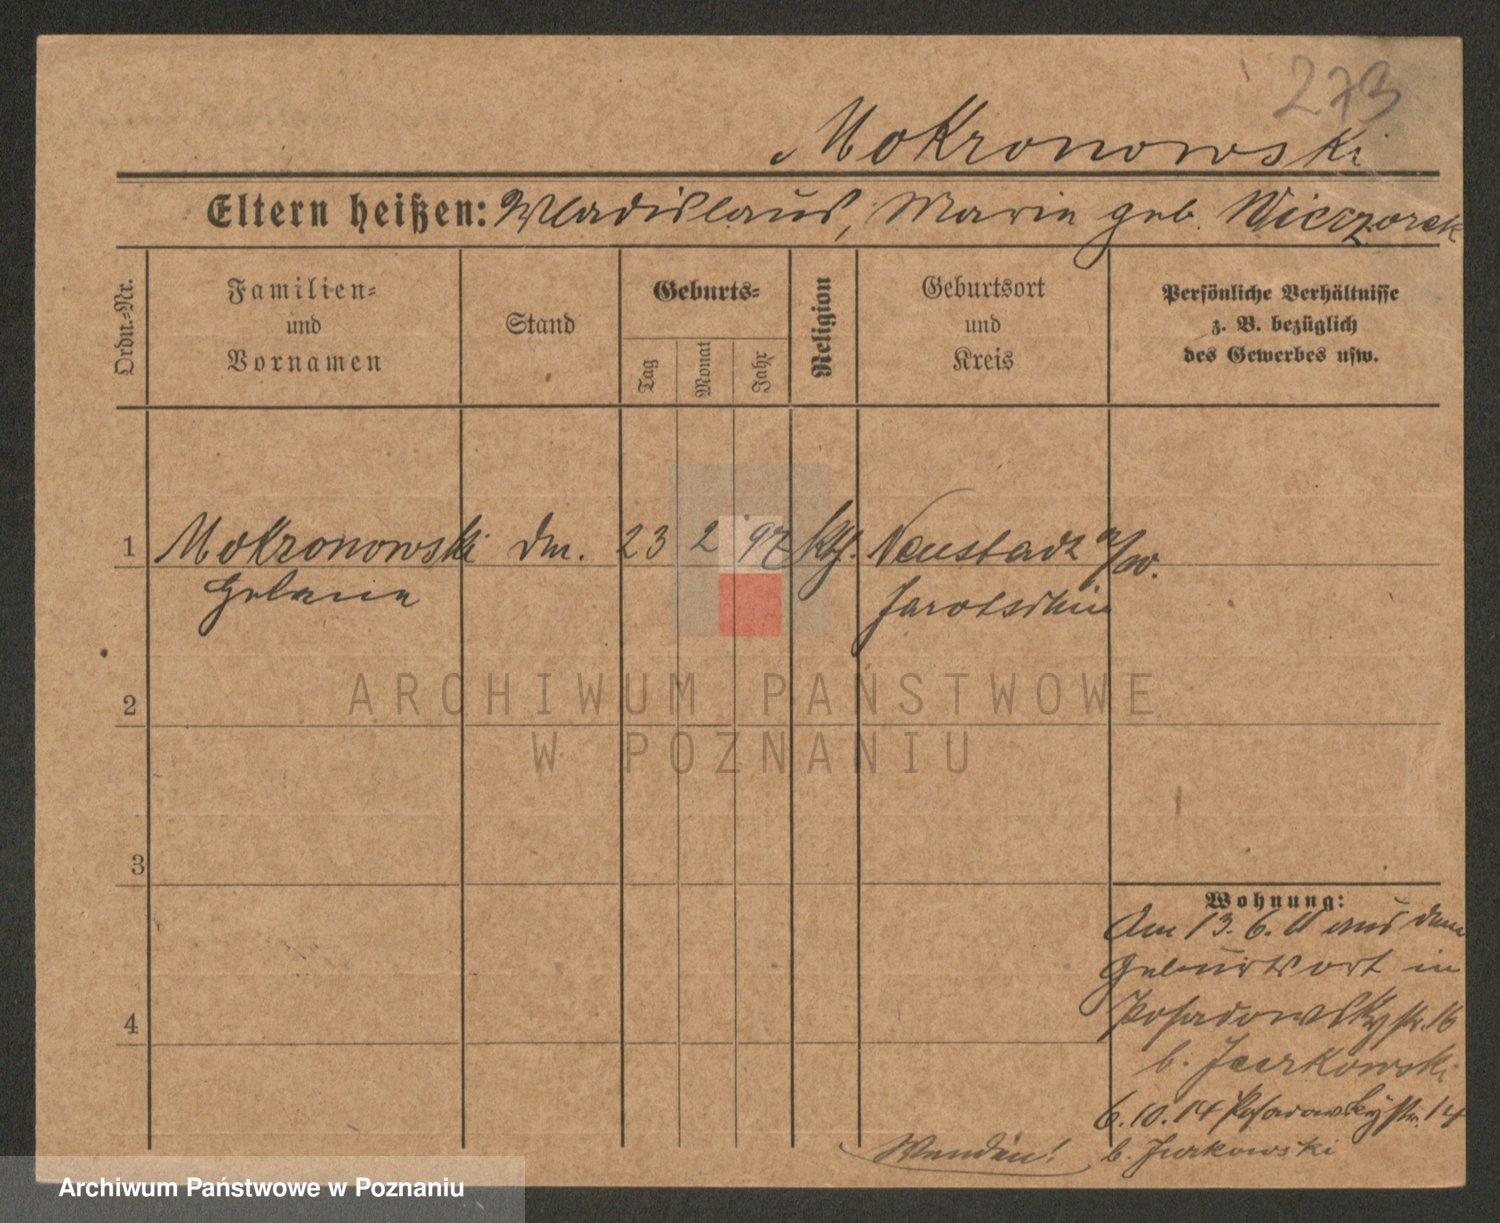 273
Mokronowski
Eltern heißen: Wladislaus, Marie geb. Wieczorek
Ordn.-Nr.
Familien-
und
Vornamen
Stand
Geburts-
Tag
Monat
Jahr
Religion
Geburtsort
und
Kreis
Persönliche Verhältnisse
z. B. bezüglich
des Gewerbes usw.
1 Mokronowski 23 2 97 kth. Neustadt a/W.
Helene Jarotschin
2
3
4
Wohnung:
Am 13. 6. 11 aus dem
Geburtsort in
Posadowskystr. 16
b. Jurkowski
6. 10. 14 Posadowskystr. 14
b. Jurkowski
Wenden!
ARCHIWUM PAŃSTWOWE
W POZNANIU
Archiwum Państwowe w Poznaniu